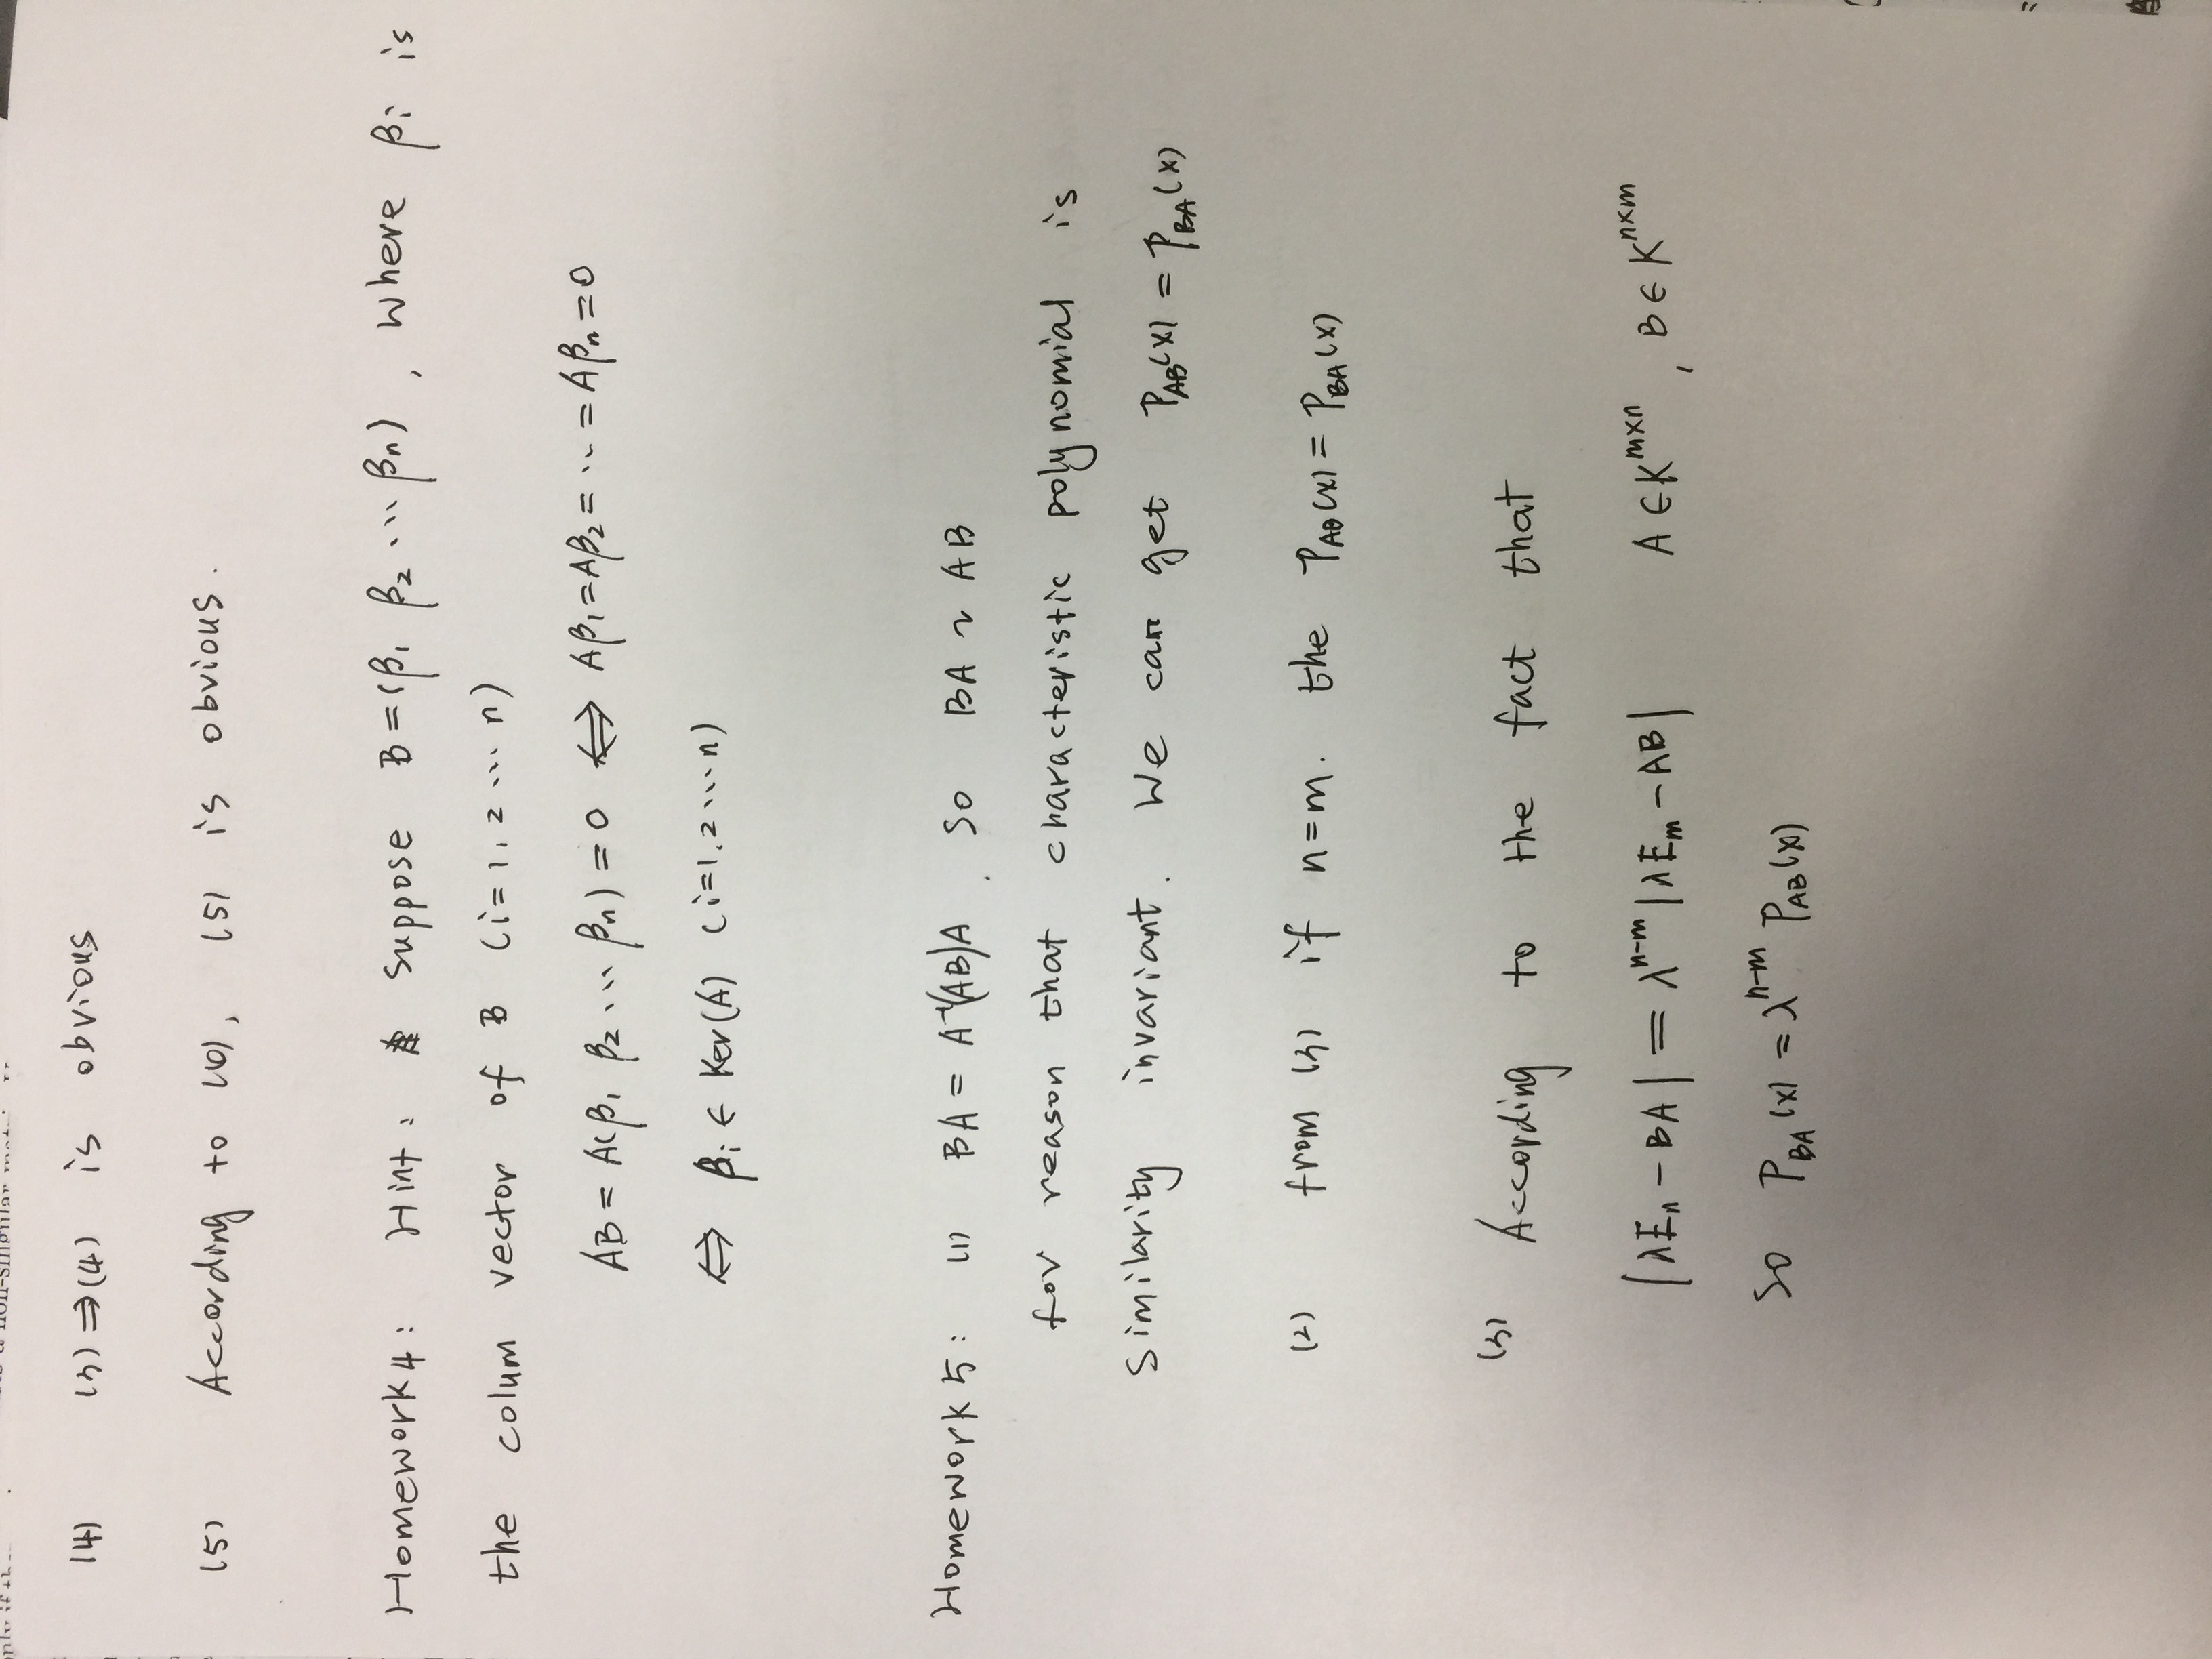 a non-singular
(4) (3) ⇒ (4) is obvious
(5) According to (6), (5) is obvious.
Homework 4: Hint: suppose B = (β₁ β₂ ... βn), where βi is
the colum vector of B (i=1, 2 ... n)
AB = A(β₁ β₂ ... βn) = 0 ⇔ Aβ₁ = Aβ₂ = ... = Aβn = 0
⇔ βi ∈ Ker(A) (i=1, 2 ... n)
Homework 5: (1) BA = A⁻¹(AB)A. So BA ~ AB
for reason that characteristic polynomial is
similarity invariant. We can get P_AB(x) = P_BA(x)
(2) from (3) if n=m. the P_AB(x) = P_BA(x)
(3) According to the fact that
|λEn - BA| = λ^{n-m} |λEm - AB| A ∈ K^{m×n}, B ∈ K^{n×m}
So P_BA(x) = λ^{n-m} P_AB(x)